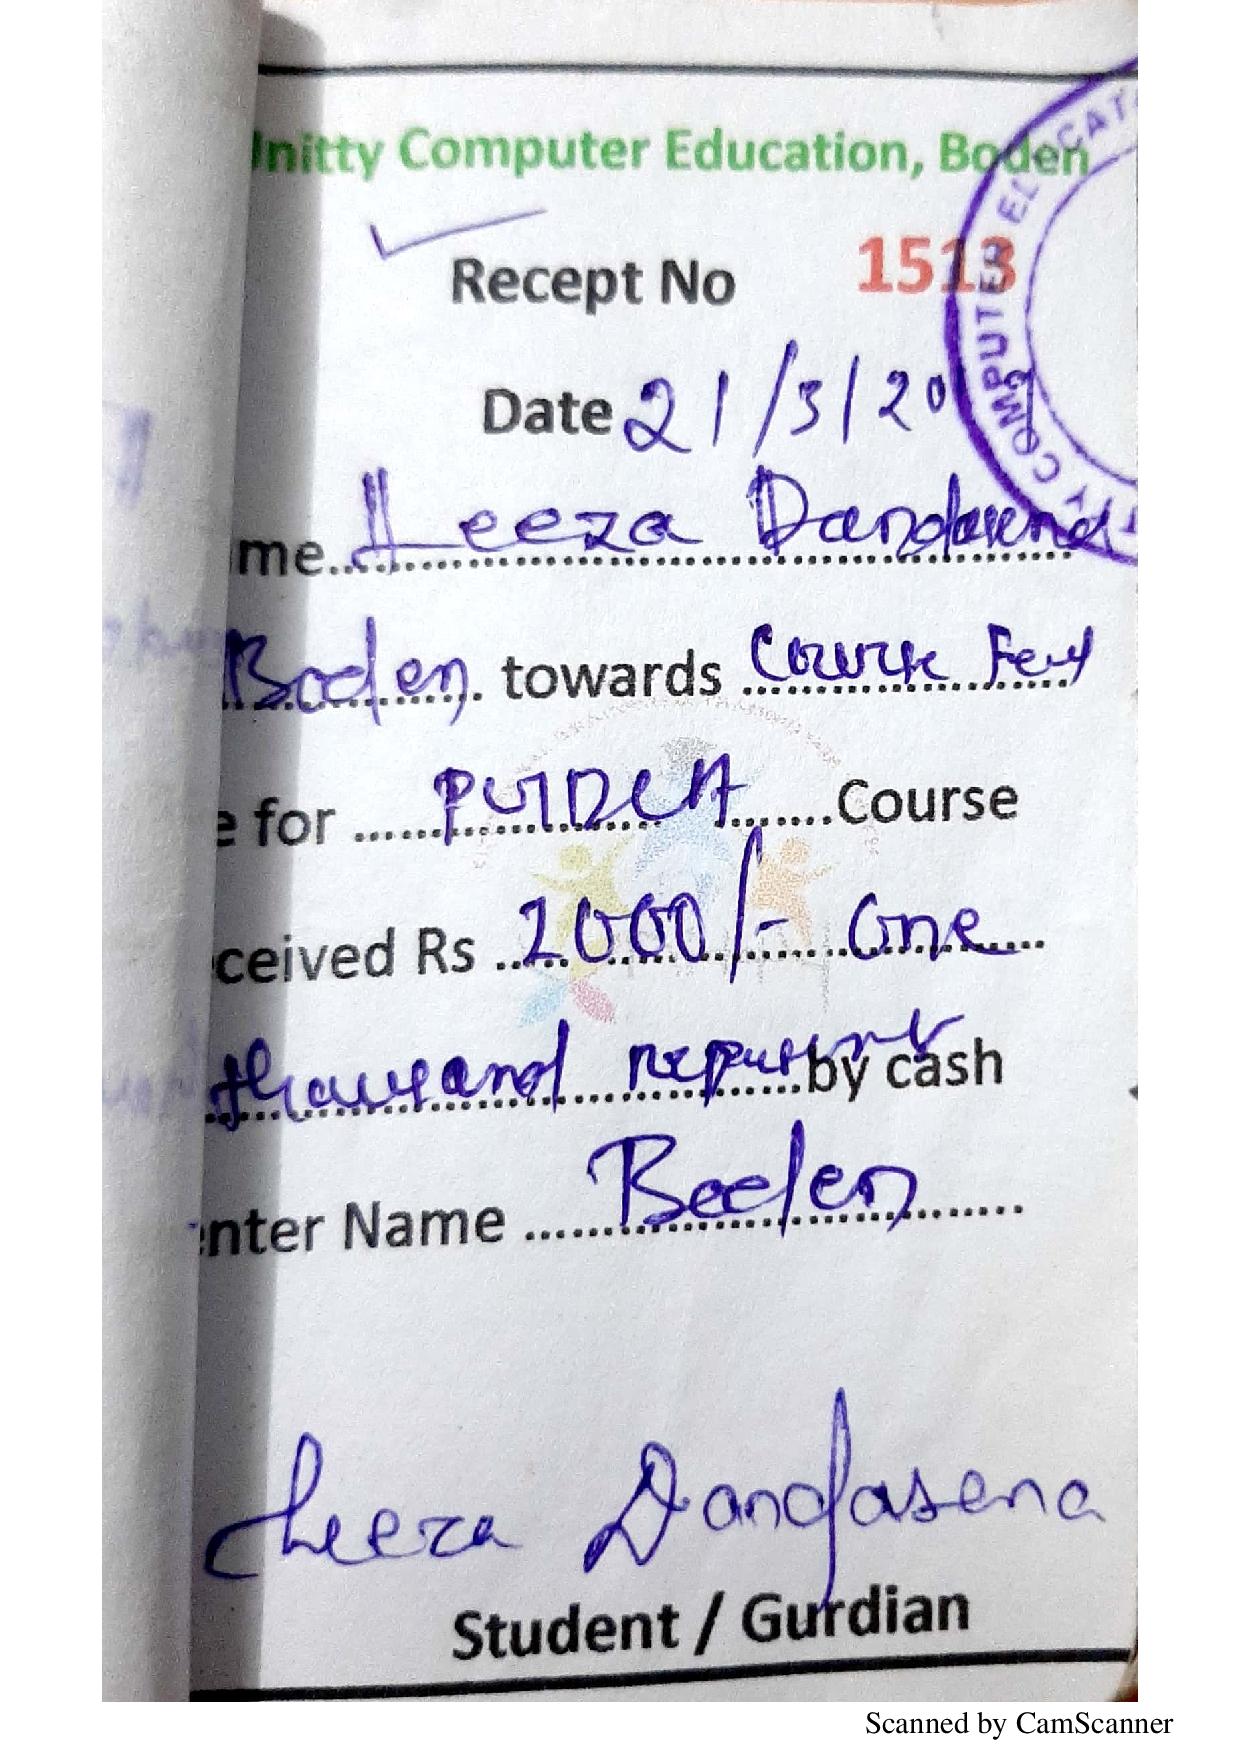 Unitty Computer Education, Boden
Recept No 1513
Date 21/3/20
me Leeza Dandasena
Boden. towards Course Fey
e for PGDCA Course
ceived Rs 2000/- one
thousand by cash
enter Name Boden
Leeza Dandasena
Student / Gurdian
COMPUTER
Scanned by CamScanner